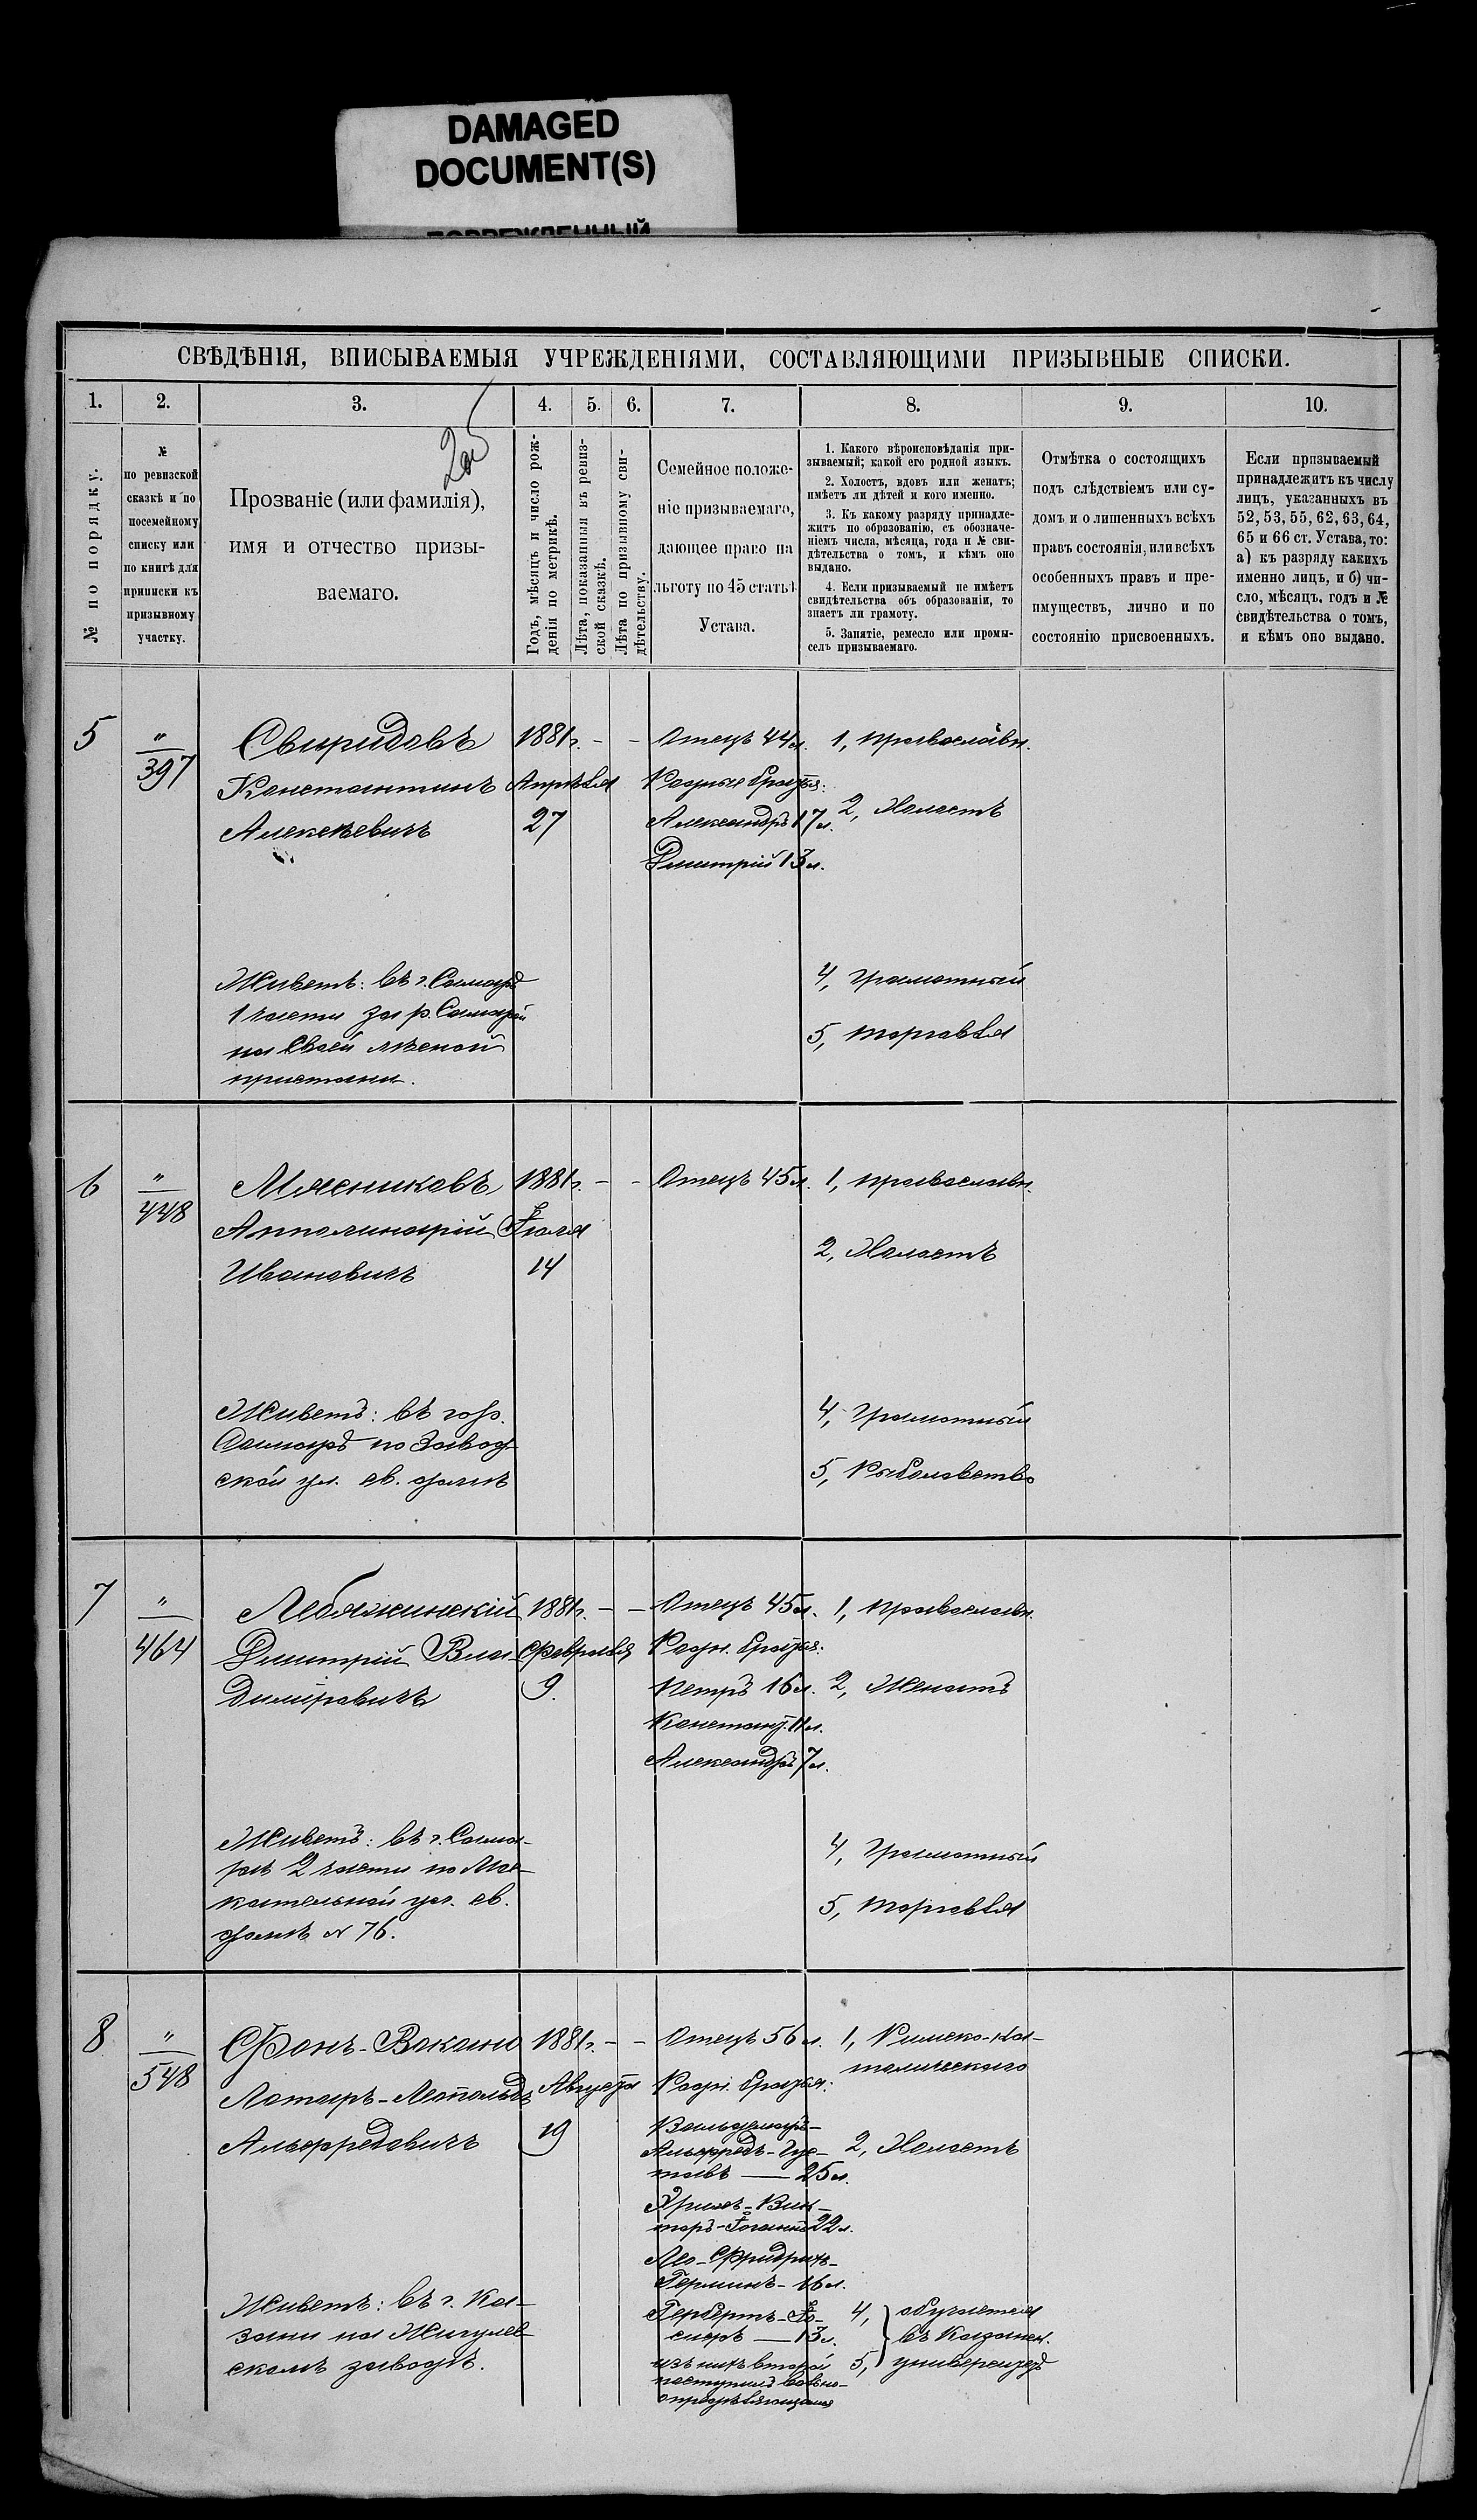 DAMAGED
DOCUMENT(S)
СВѢДѢНІЯ, ВПИСЫВАЕМЫЯ УЧРЕЖДЕНІЯМИ, СОСТАВЛЯЮЩИМИ ПРИЗЫВНЫЕ СПИСКИ.
1. 2. 3. 4. 5. 6. 7. 8. 9. 10.
№ по порядку.
№
по ревизской
сказкѣ и по
посемейному
списку или
по книгѣ для
приписки къ
призывному
участку.
Прозваніе (или фамилія),
имя и отчество призы-
ваемаго.
Годъ, мѣсяцъ и число рож-
денія по метрикѣ.
Лѣта, показанныя въ ревиз-
ской сказкѣ.
Лѣта по призывному сви-
дѣтельству.
Семейное положе-
ніе призываемаго,
дающее право на
льготу по 45 статьѣ
Устава.
1. Какого вѣроисповѣданія при-
зываемый; какой его родной языкъ.
2. Холостъ, вдовъ или женатъ;
имѣетъ ли дѣтей и кого именно.
3. Къ какому разряду принадле-
житъ по образованію, съ обозначе-
ніемъ числа, мѣсяца, года и № сви-
дѣтельства о томъ, и кѣмъ оно
выдано.
4. Если призываемый не имѣетъ
свидѣтельства объ образованіи, то
знаетъ ли грамоту.
5. Занятіе, ремесло или промы-
селъ призываемаго.
Отмѣтка о состоящихъ
подъ слѣдствіемъ или су-
домъ и о лишенныхъ всѣхъ
правъ состоянія, или всѣхъ
особенныхъ правъ и пре-
имуществъ, лично и по
состоянію присвоенныхъ.
Если призываемый
принадлежитъ къ числу
лицъ, указанныхъ въ
52, 53, 55, 62, 63, 64,
65 и 66 ст. Устава, то:
а) къ разряду какихъ
именно лицъ, и б) чи-
сло, мѣсяцъ, годъ и №
свидѣтельства о томъ,
и кѣмъ оно выдано.
5
"
397
Свиридовъ
Константинъ
Алексѣевичъ
1881 г. - -
Апрѣля
27
Отецъ 44 л.
Родные братья:
Александръ 17 л.
Дмитрій 13 л.
1, православн.
2, Холостъ
Живетъ: въ г. Самарѣ
1 части за р. Самарой
на своей лѣсной
пристани.
4, Грамотный
5, торговля
6
"
448
Мясниковъ
Апполинарій
Ивановичъ
1881 г. - -
Іюля
14
Отецъ 45 л.
1, православн.
2, Холостъ
Живетъ: въ гор.
Самарѣ по Завод-
ской ул. св. домѣ
4, Грамотный
5, Рыболовство
7
"
464
Лебяжинскій
Дмитрій Вла-
диміровичъ
1881 г. - -
Февраля
9.
Отецъ 45 л.
Родн. братья:
Петръ 16 л.
Констант. 11 л.
Александръ 7 л.
1, православн.
2, Женатъ
Живетъ: въ г. Сама-
рѣ 2 части по Мос-
кательной ул. св.
домѣ № 76.
4, Грамотный
5, торговля
8
"
548
Фонъ-Вакано
Лотаръ-Леопольдъ
Альфредовичъ
1881 г. - -
Августа
19
Отецъ 56 л.
Родн. братья:
Вольдемаръ-
Альфредъ-Гус-
тавъ — 25 л.
Эрихъ-Вик-
торъ-Іоганнъ 22 л.
Лео-Фридрихъ-
Германъ - 16 л.
Гербертъ-Іо-
сифъ — 13 л.
изъ нихъ второй
поступилъ вольно-
опредѣляющимся
1, Римско-ка-
толическаго
2, Холостъ
Живетъ: въ г. Ка-
зани на Жигулев-
скомъ заводѣ.
4, обучается
въ Казанск.
5, университетѣ